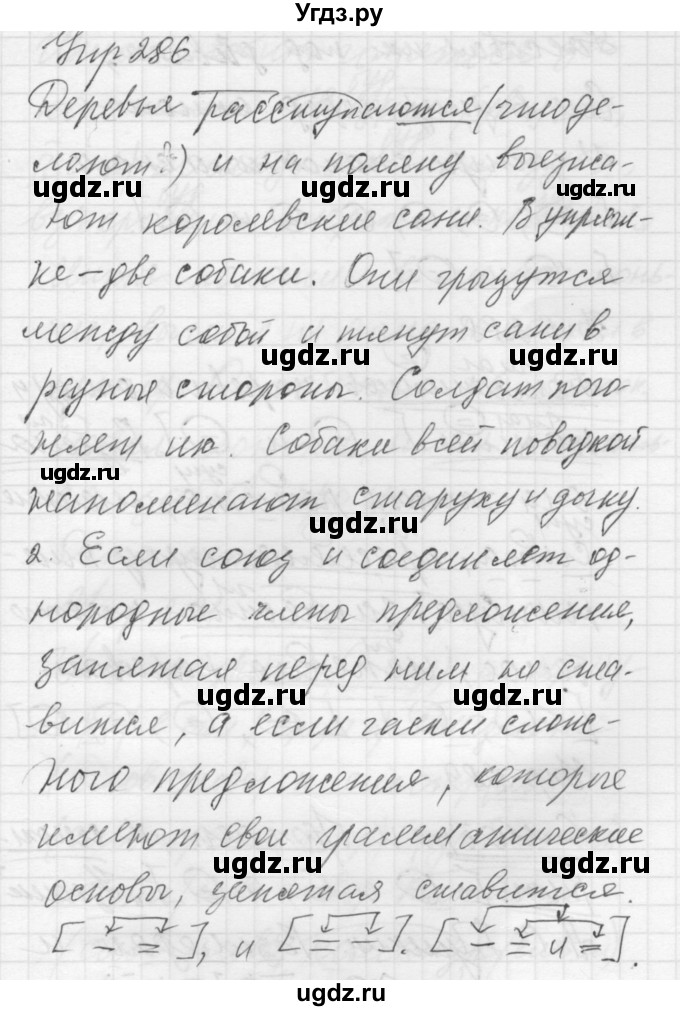 Угдз.ру
Упр 286
Деревья расступаются (что де-
лают?) и на поляну выезжа-
ugdz.ru ugdz.ru ugdz.ru
ют королевские сани. В упряж-
ке – две собаки. Они грызутся
между собой и тянут сани в
ugdz.ru ugdz.ru
разные стороны. Солдат пого-
няет их. Собаки всей повадкой
ugdz.ru
напоминают старуху и дочку.
ugdz.ru ugdz.ru
2. Если союз и соединяет од-
нородные члены предложения,
запятая перед ним не ста-
ugdz.ru ugdz.ru
вится, а если части слож-
ного предложения, которые
имеют свои грамматические
ugdz.ru ugdz.ru
основы, запятая ставится.
[– =], и [= –]. [– = и =].
ugdz.ru